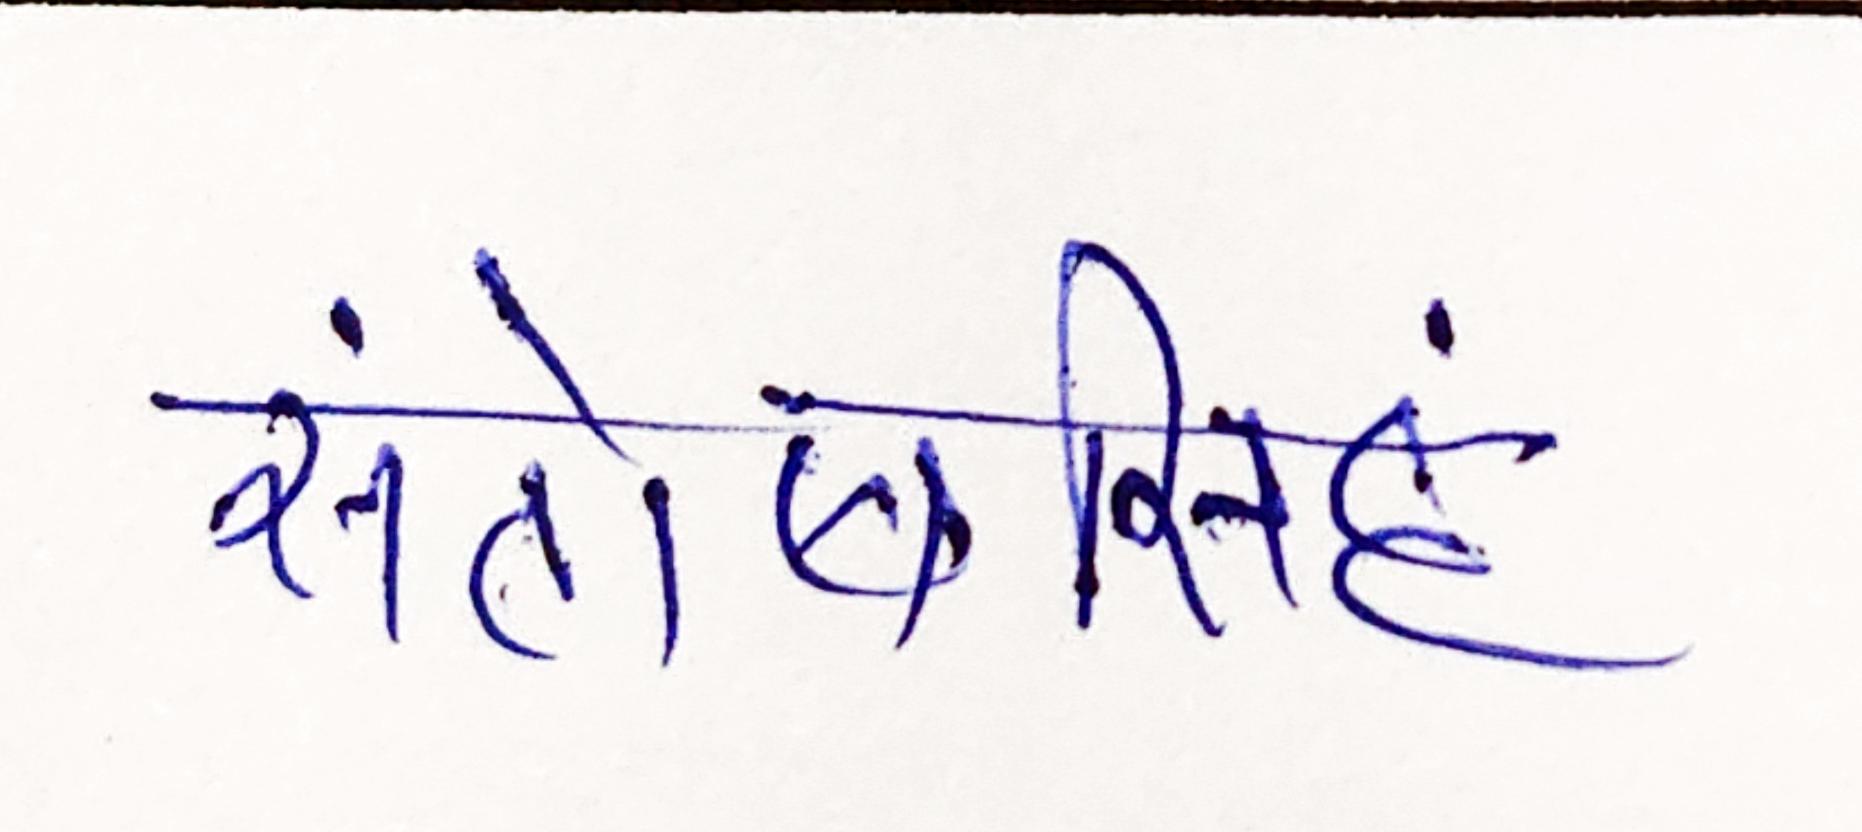 संतोष सिहं